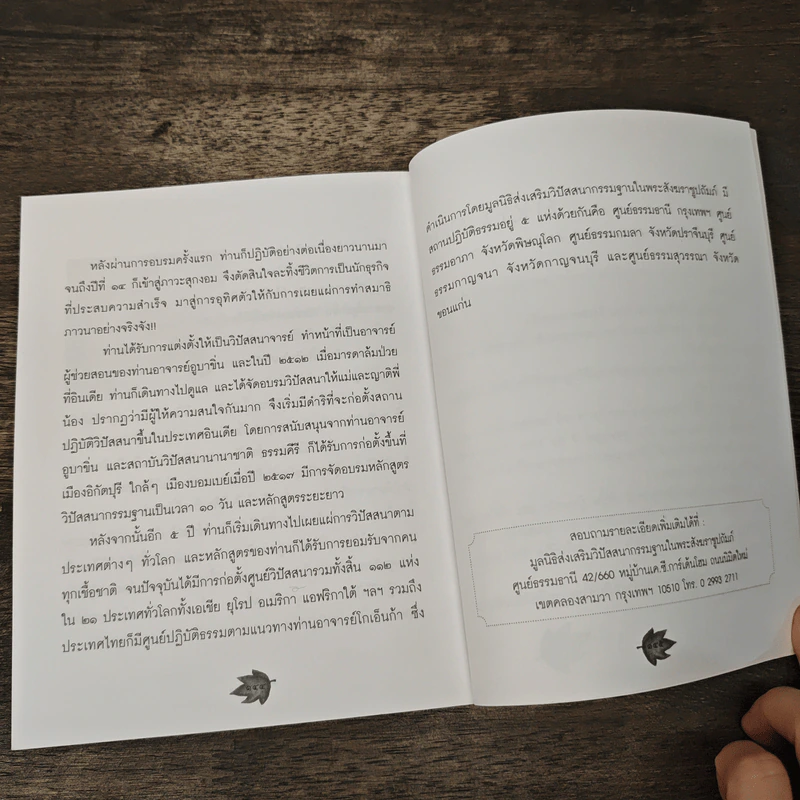 หลังผ่านการอบรมครั้งแรก ท่านก็ปฏิบัติอย่างต่อเนื่องยาวนานมา
จนถึงปีที่ ๑๔ ก็เข้าสู่ภาวะสุกงอม จึงตัดสินใจละทิ้งชีวิตการเป็นนักธุรกิจ
ที่ประสบความสำเร็จ มาสู่การอุทิศตัวให้กับการเผยแผ่การทำสมาธิ
ภาวนาอย่างจริงจัง!!
ท่านได้รับการแต่งตั้งให้เป็นวิปัสสนาจารย์ ทำหน้าที่เป็นอาจารย์
ผู้ช่วยสอนของท่านอาจารย์อูบาขิ่น และในปี ๒๕๑๒ เมื่อมารดาล้มป่วย
ที่อินเดีย ท่านก็เดินทางไปดูแล และได้จัดอบรมวิปัสสนาให้แม่และญาติพี่
น้อง ปรากฏว่ามีผู้ให้ความสนใจกันมาก จึงเริ่มมีดำริที่จะก่อตั้งสถาน
ปฏิบัติวิปัสสนาขึ้นในประเทศอินเดีย โดยการสนับสนุนจากท่านอาจารย์
อูบาขิ่น และสถาบันวิปัสสนานานาชาติ ธรรมคีรี ก็ได้รับการก่อตั้งขึ้นที่
เมืองอิกัตปุรี ใกล้ๆ เมืองบอมเบย์เมื่อปี ๒๕๑๗ มีการจัดอบรมหลักสูตร
วิปัสสนากรรมฐานเป็นเวลา ๑๐ วัน และหลักสูตรระยะยาว
หลังจากนั้นอีก ๕ ปี ท่านก็เริ่มเดินทางไปเผยแผ่การวิปัสสนาตาม
ประเทศต่างๆ ทั่วโลก และหลักสูตรของท่านก็ได้รับการยอมรับจากคน
ทุกเชื้อชาติ จนปัจจุบันได้มีการก่อตั้งศูนย์วิปัสสนารวมทั้งสิ้น ๑๑๒ แห่ง
ใน ๒๑ ประเทศทั่วโลกทั้งเอเชีย ยุโรป อเมริกา แอฟริกาใต้ ฯลฯ รวมถึง
ประเทศไทยก็มีศูนย์ปฏิบัติธรรมตามแนวทางท่านอาจารย์โกเอ็นก้า ซึ่ง
ดำเนินการโดยมูลนิธิส่งเสริมวิปัสสนากรรมฐานในพระสังฆราชูปถัมภ์ มี
สถานปฏิบัติธรรมอยู่ ๕ แห่งด้วยกันคือ ศูนย์ธรรมธานี กรุงเทพฯ ศูนย์
ธรรมอาภา จังหวัดพิษณุโลก ศูนย์ธรรมกมลา จังหวัดปราจีนบุรี ศูนย์
ธรรมกาญจนา จังหวัดกาญจนบุรี และศูนย์ธรรมสุวรรณา จังหวัด
ขอนแก่น
สอบถามรายละเอียดเพิ่มเติมได้ที่ :
มูลนิธิส่งเสริมวิปัสสนากรรมฐานในพระสังฆราชูปถัมภ์
ศูนย์ธรรมธานี 42/660 หมู่บ้านเค.ซี.การ์เด้นโฮม ถนนนิมิตใหม่
เขตคลองสามวา กรุงเทพฯ 10510 โทร. 0 2993 2711